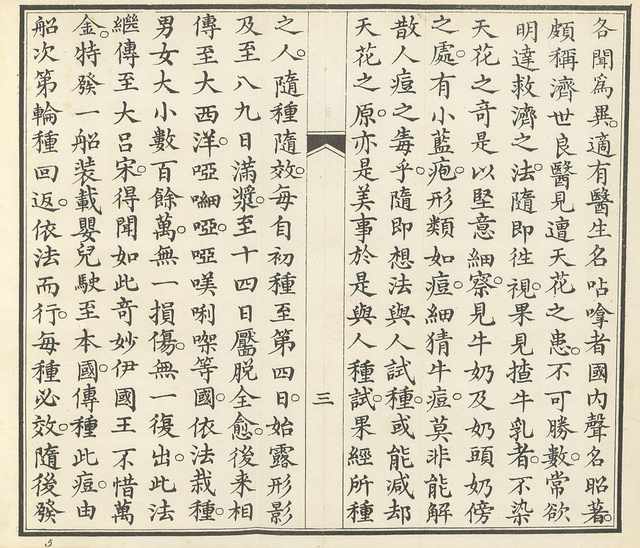 各聞爲異。適有醫生名呫嗱者國內聲名昭著。
頗稱濟世良醫見遭天花之患。不可勝數。常欲
明達救濟之法。隨即往視。果見揸牛乳者。不染
天花之奇是以堅意細察。見牛奶及奶頭奶傍
之處。有小藍疱。形類如痘。細猜牛痘。莫非能解
散人痘之毒乎。隨即想法與人試種。或能减却
天花之原。亦是美事於是與人種試。果經所種
三
之人。隨種隨效。每自初種至第四日。始露形影
及至八九日滿漿。至十四日靨脫全愈。後來相
傳至大西洋。啞啞。啞唎㗎等國。依法栽種。
男女大小數百餘萬。無一損傷。無一復出。此法
繼傳至大呂宋。得聞如此奇妙伊國王不惜萬
金。特發一船裝載嬰兒駛至本國。傳種此痘。由
船次第輪種回返。依法而行。每種必效。隨後發
5